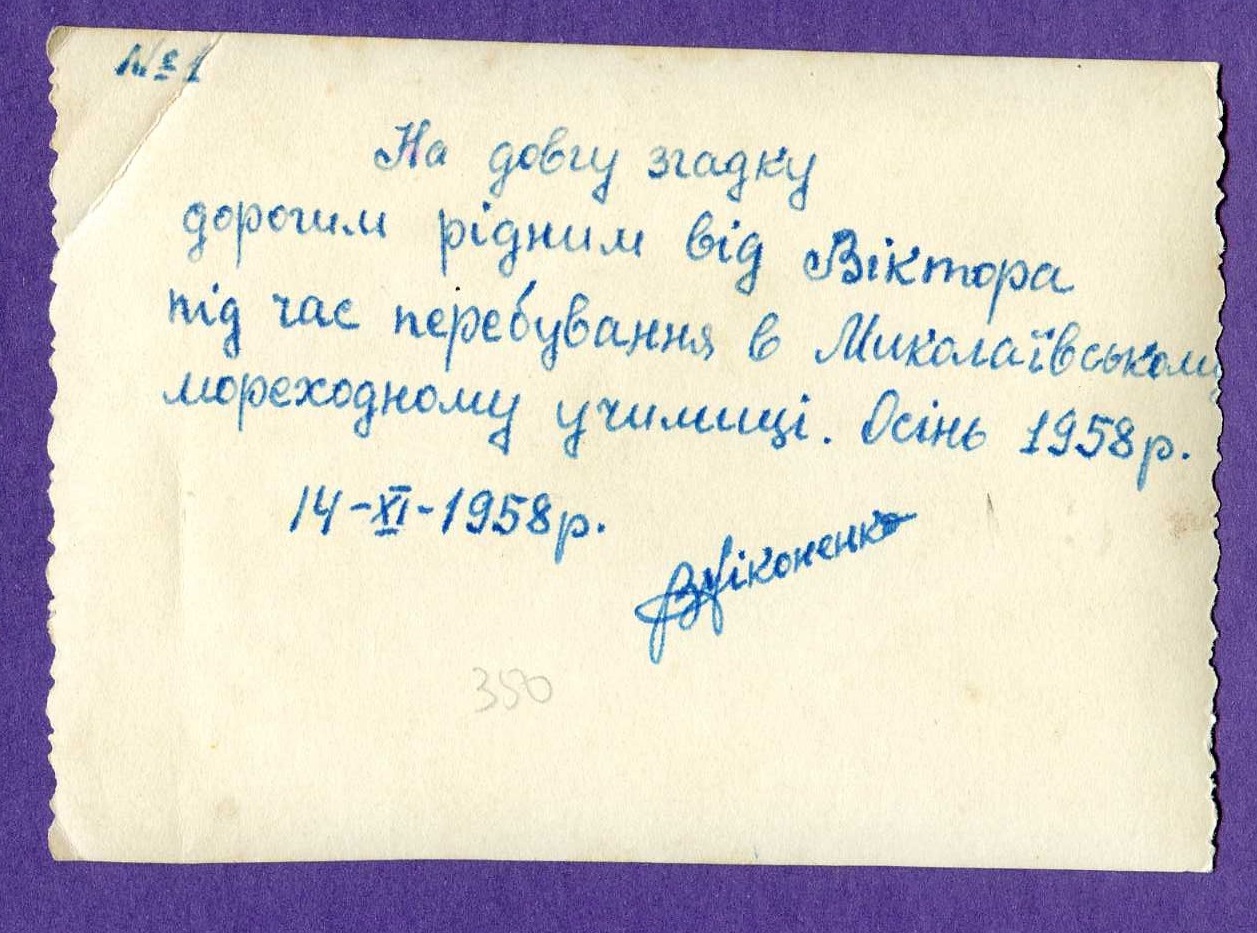 №1
На довгу згадку
дорогим рідним від Віктора
під час перебування в Миколаївському
мореходному училищі. Осінь 1958р.
14-XI-1958р.
350